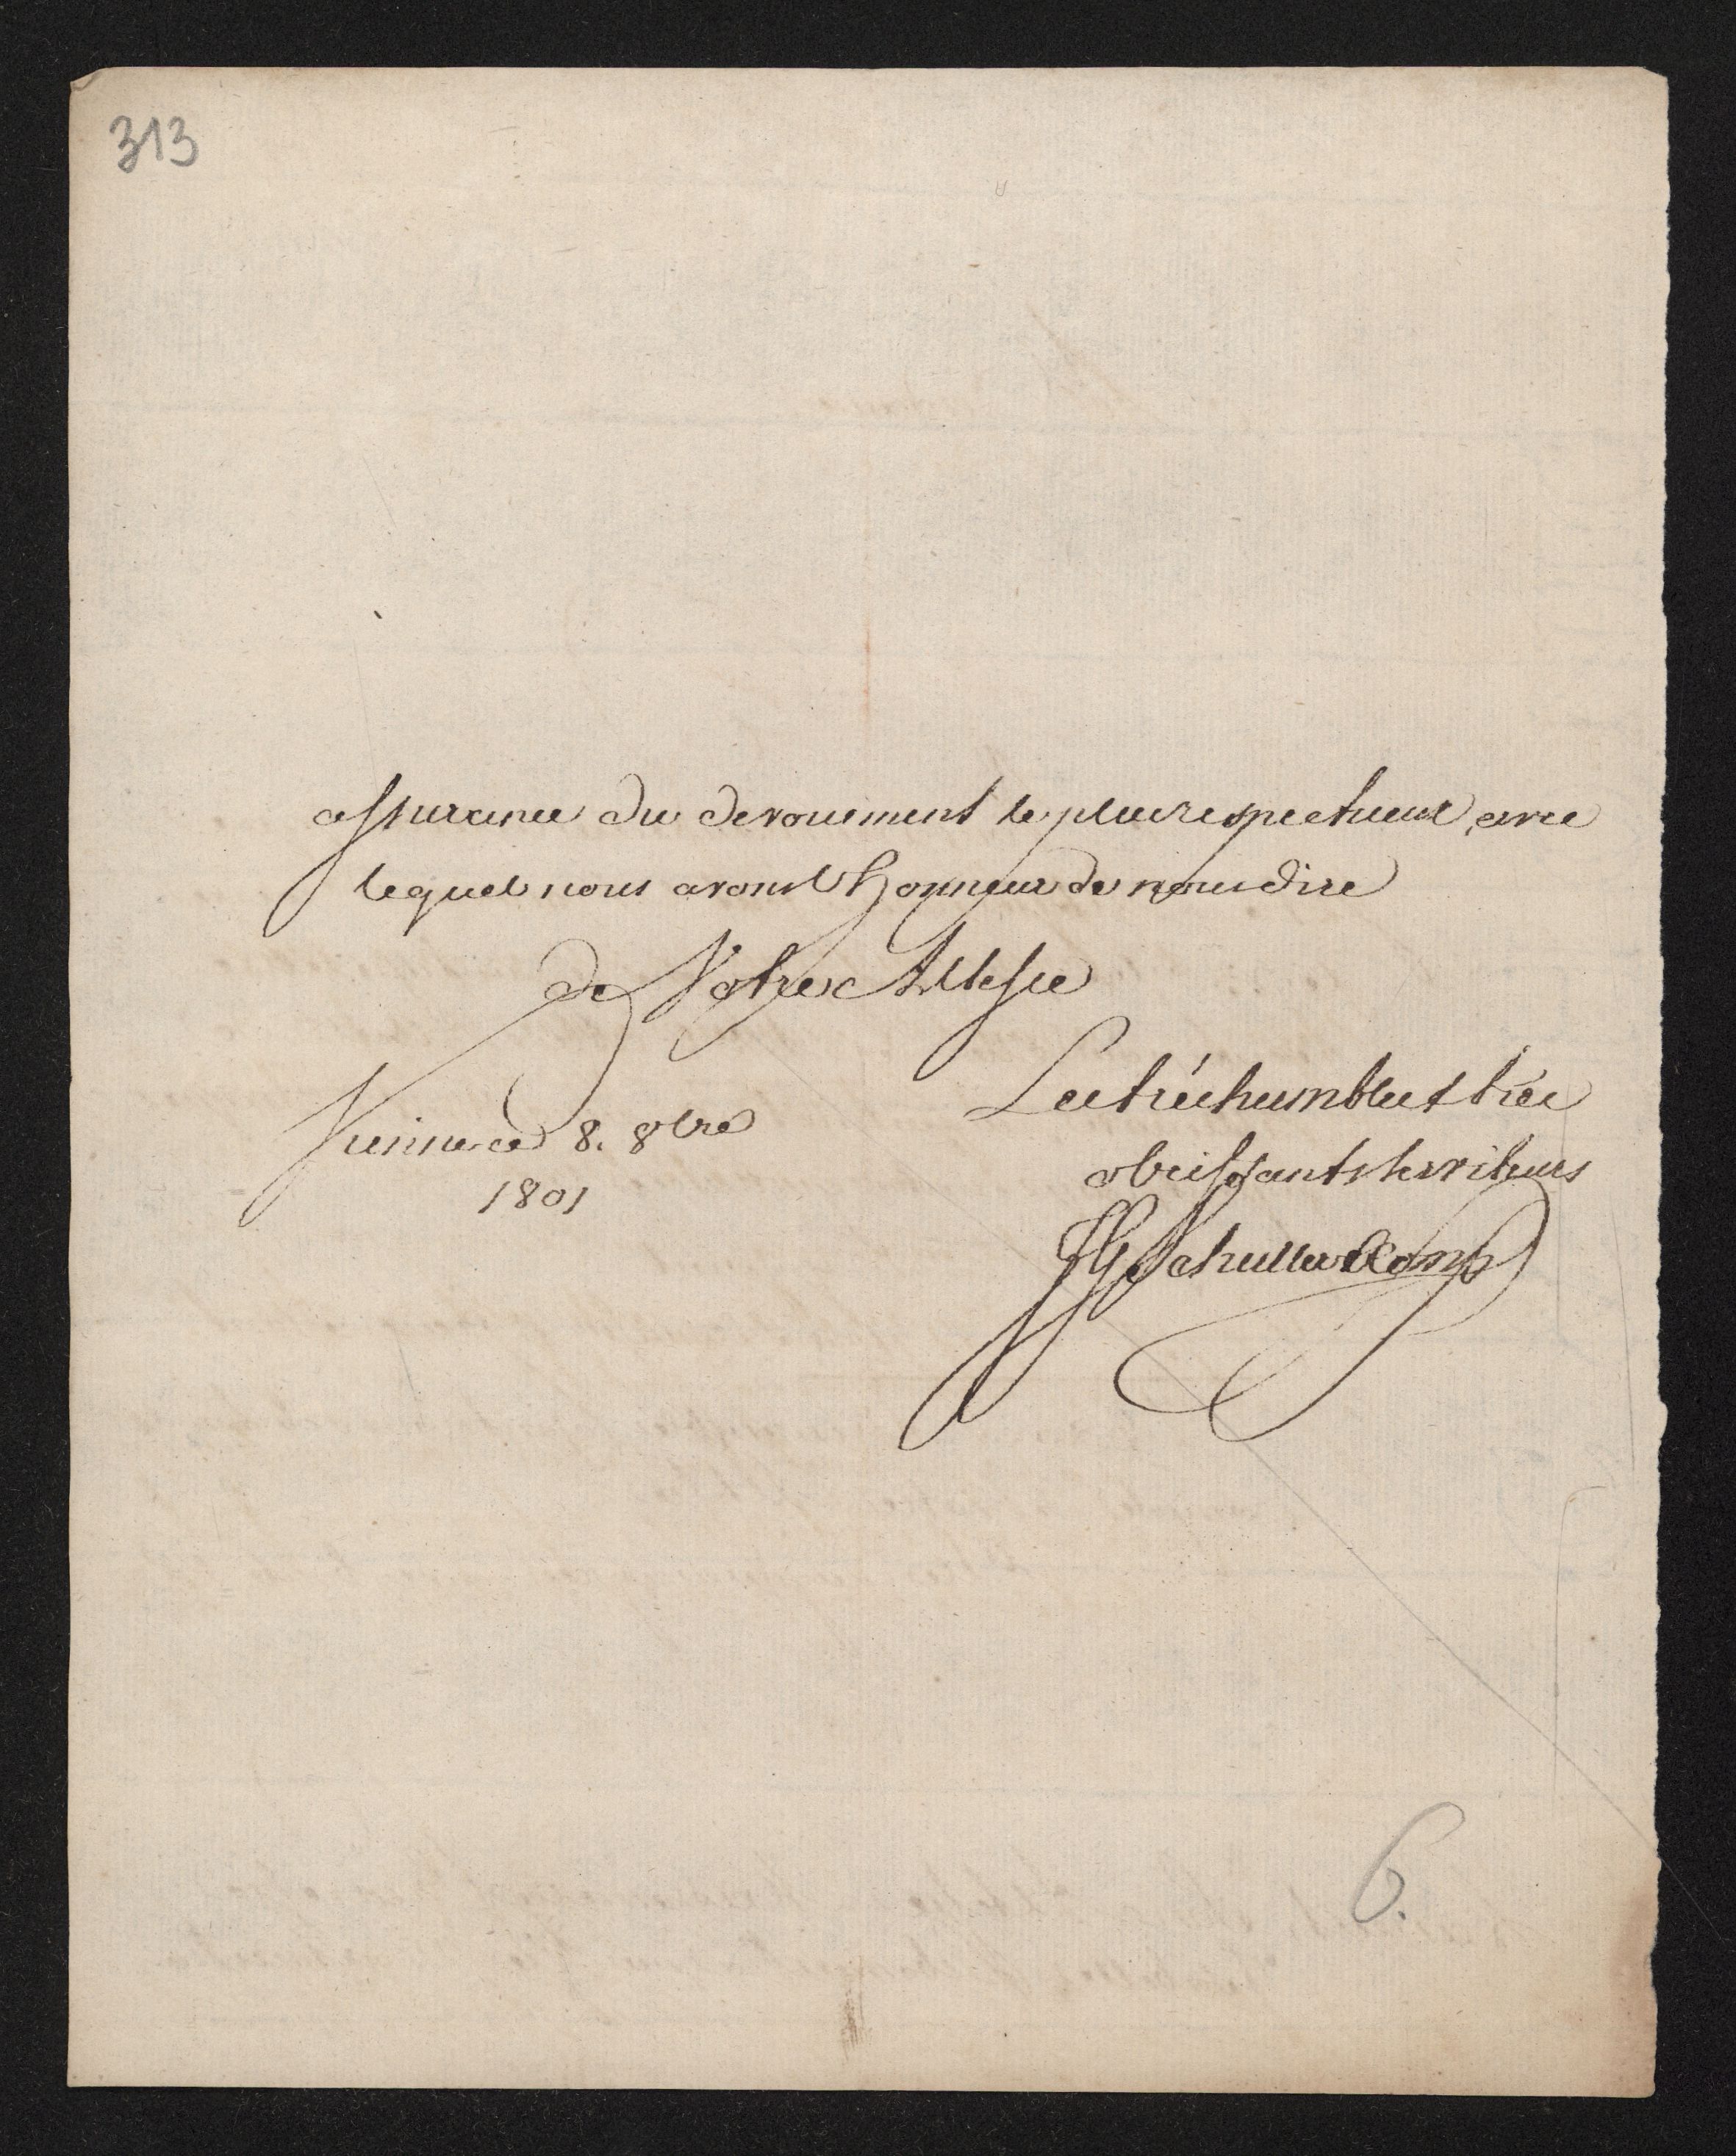 313
assurance du devouement le plus respectueux, avec
lequel nous avons l'honneur de nous dire
de Votre Altesse
Les très humbles & très
Vienne ce 8. 8bre
obeissants serviteurs
1801
JG Schuller & Comp
6.